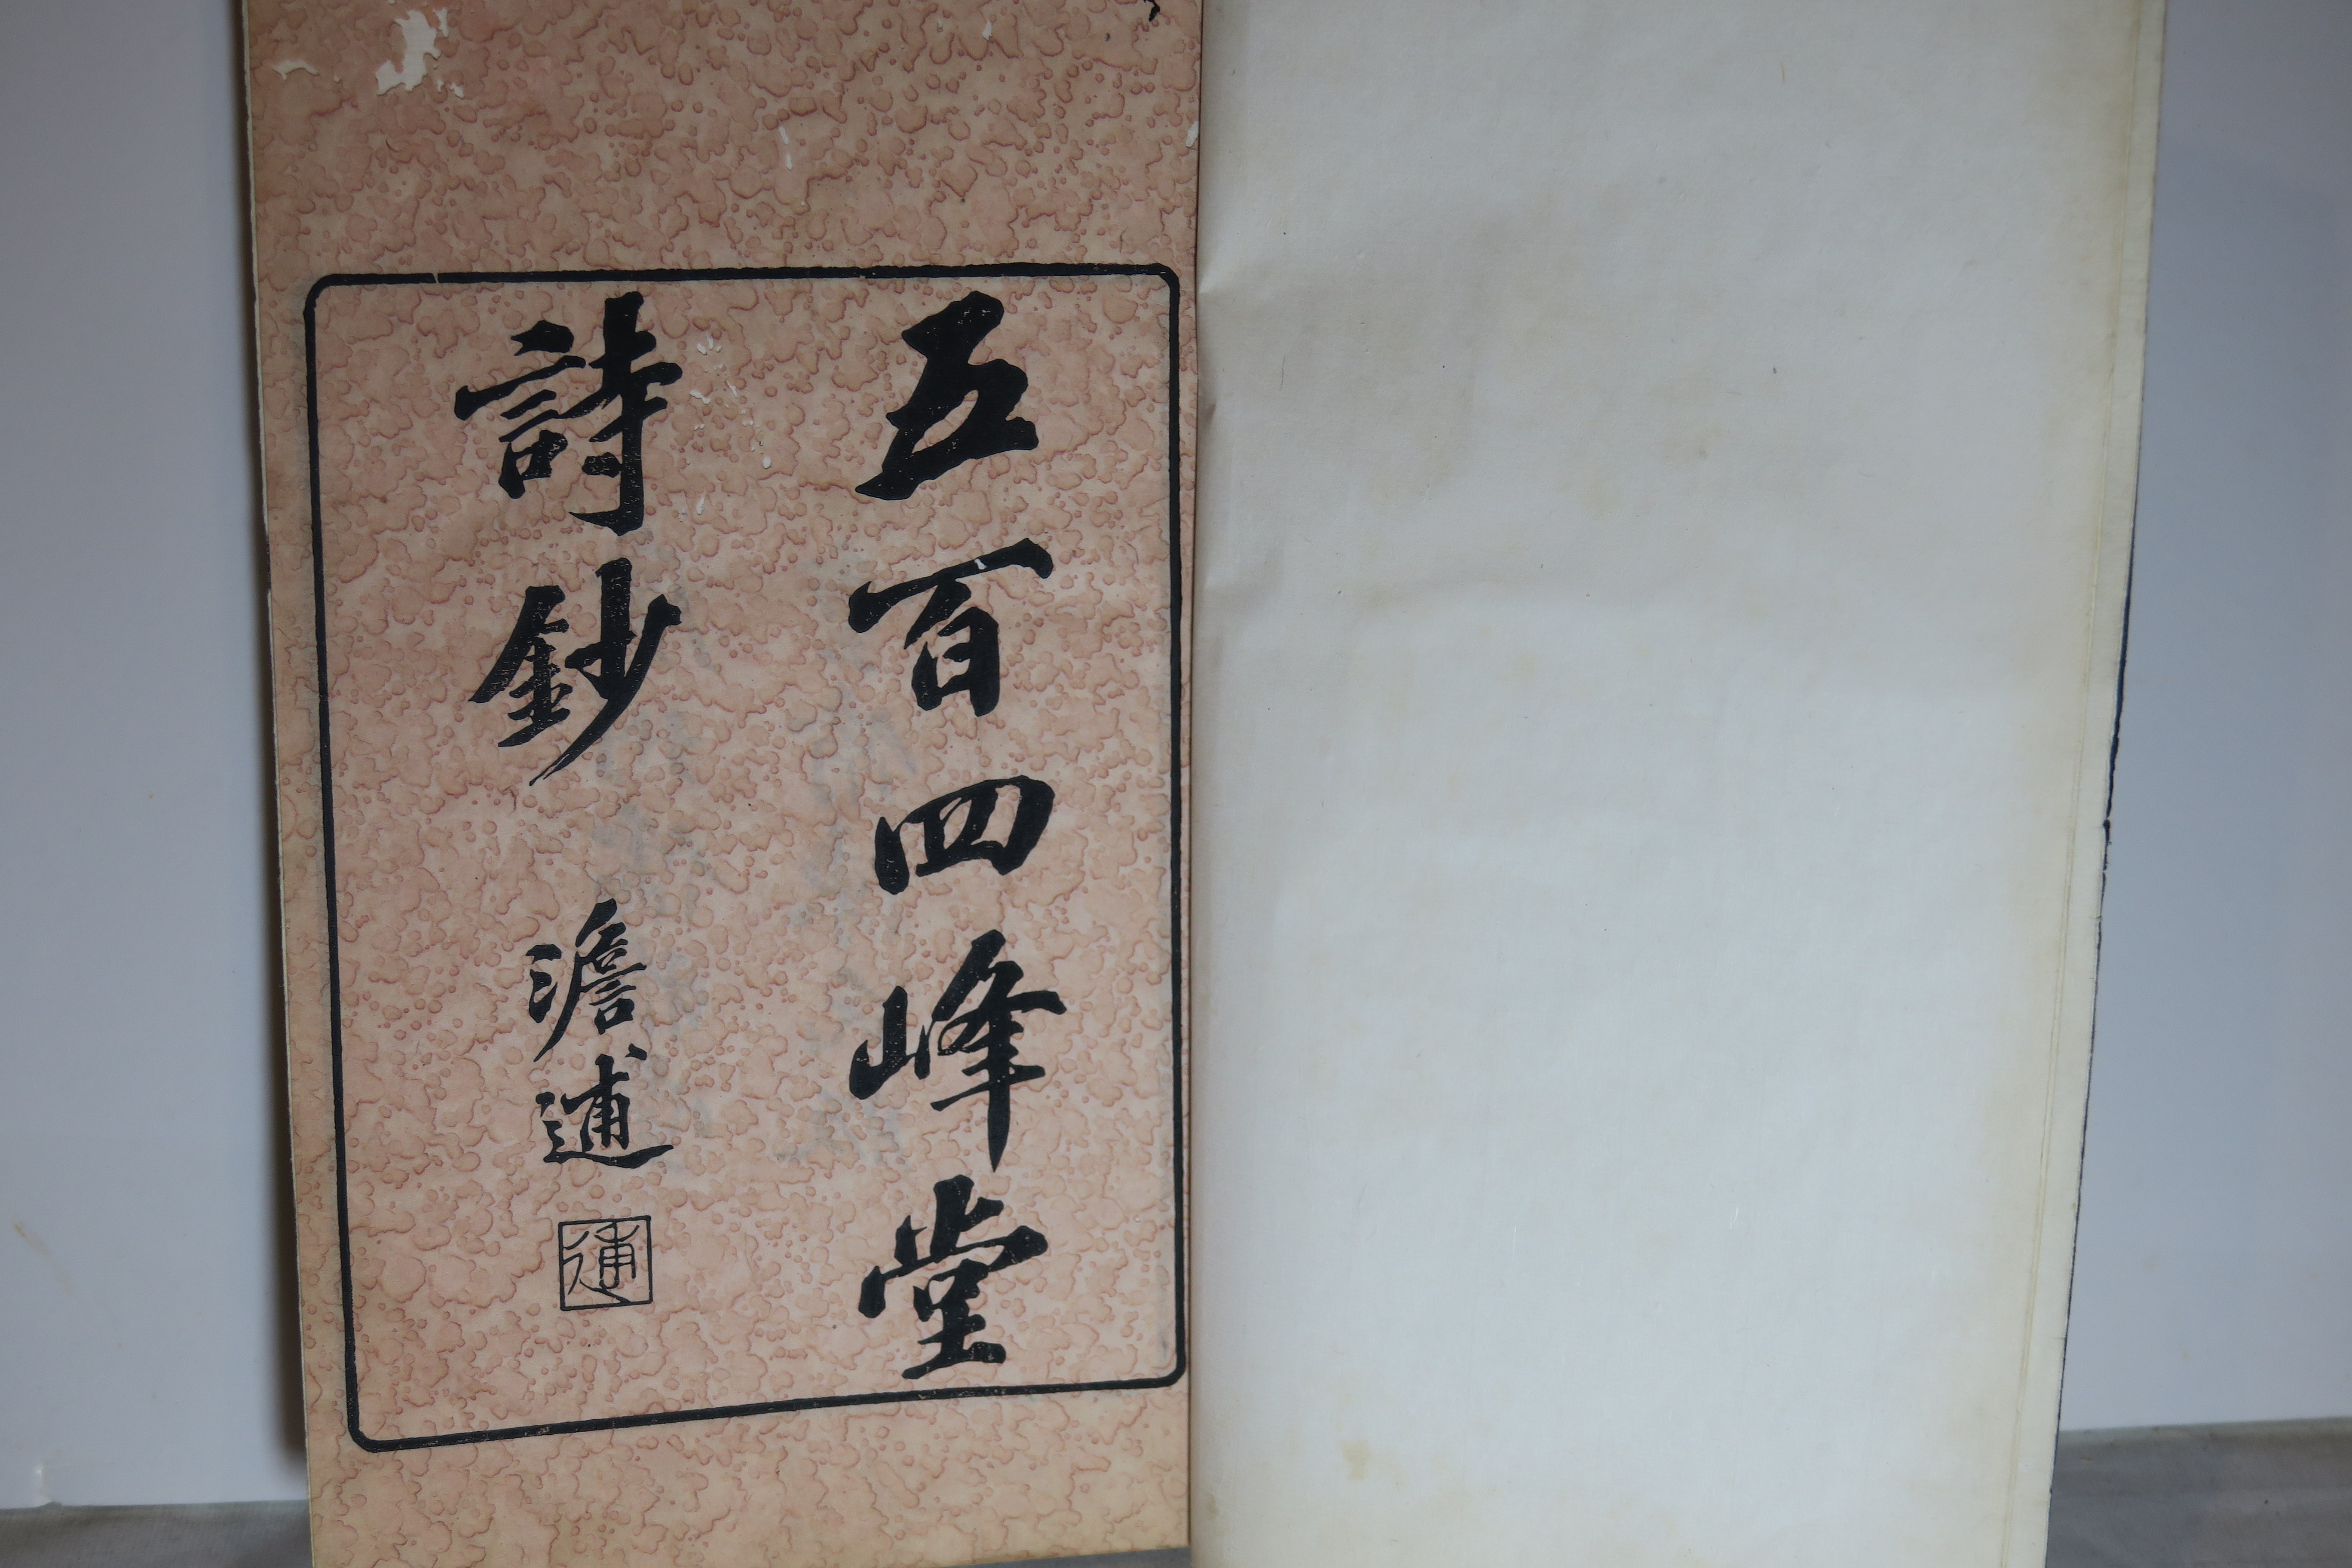 五百四峰堂
詩鈔 澹逋
逋